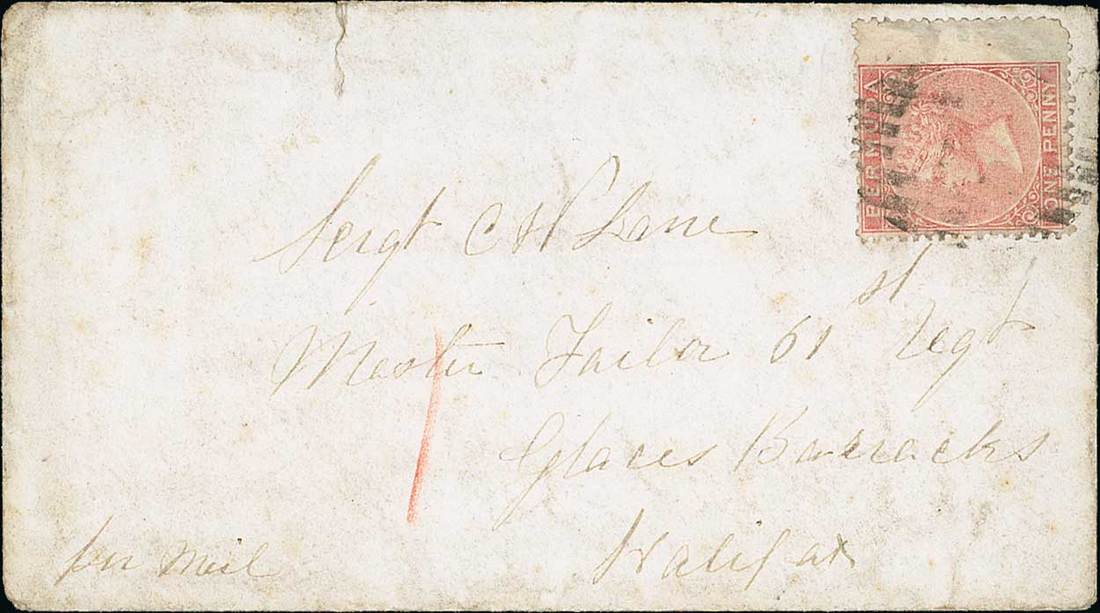 BERMUDA
ONE PENNY
Sergt C H Lane
Master Tailor 61st Regt
Glaces Barracks
Halifax
per Mail